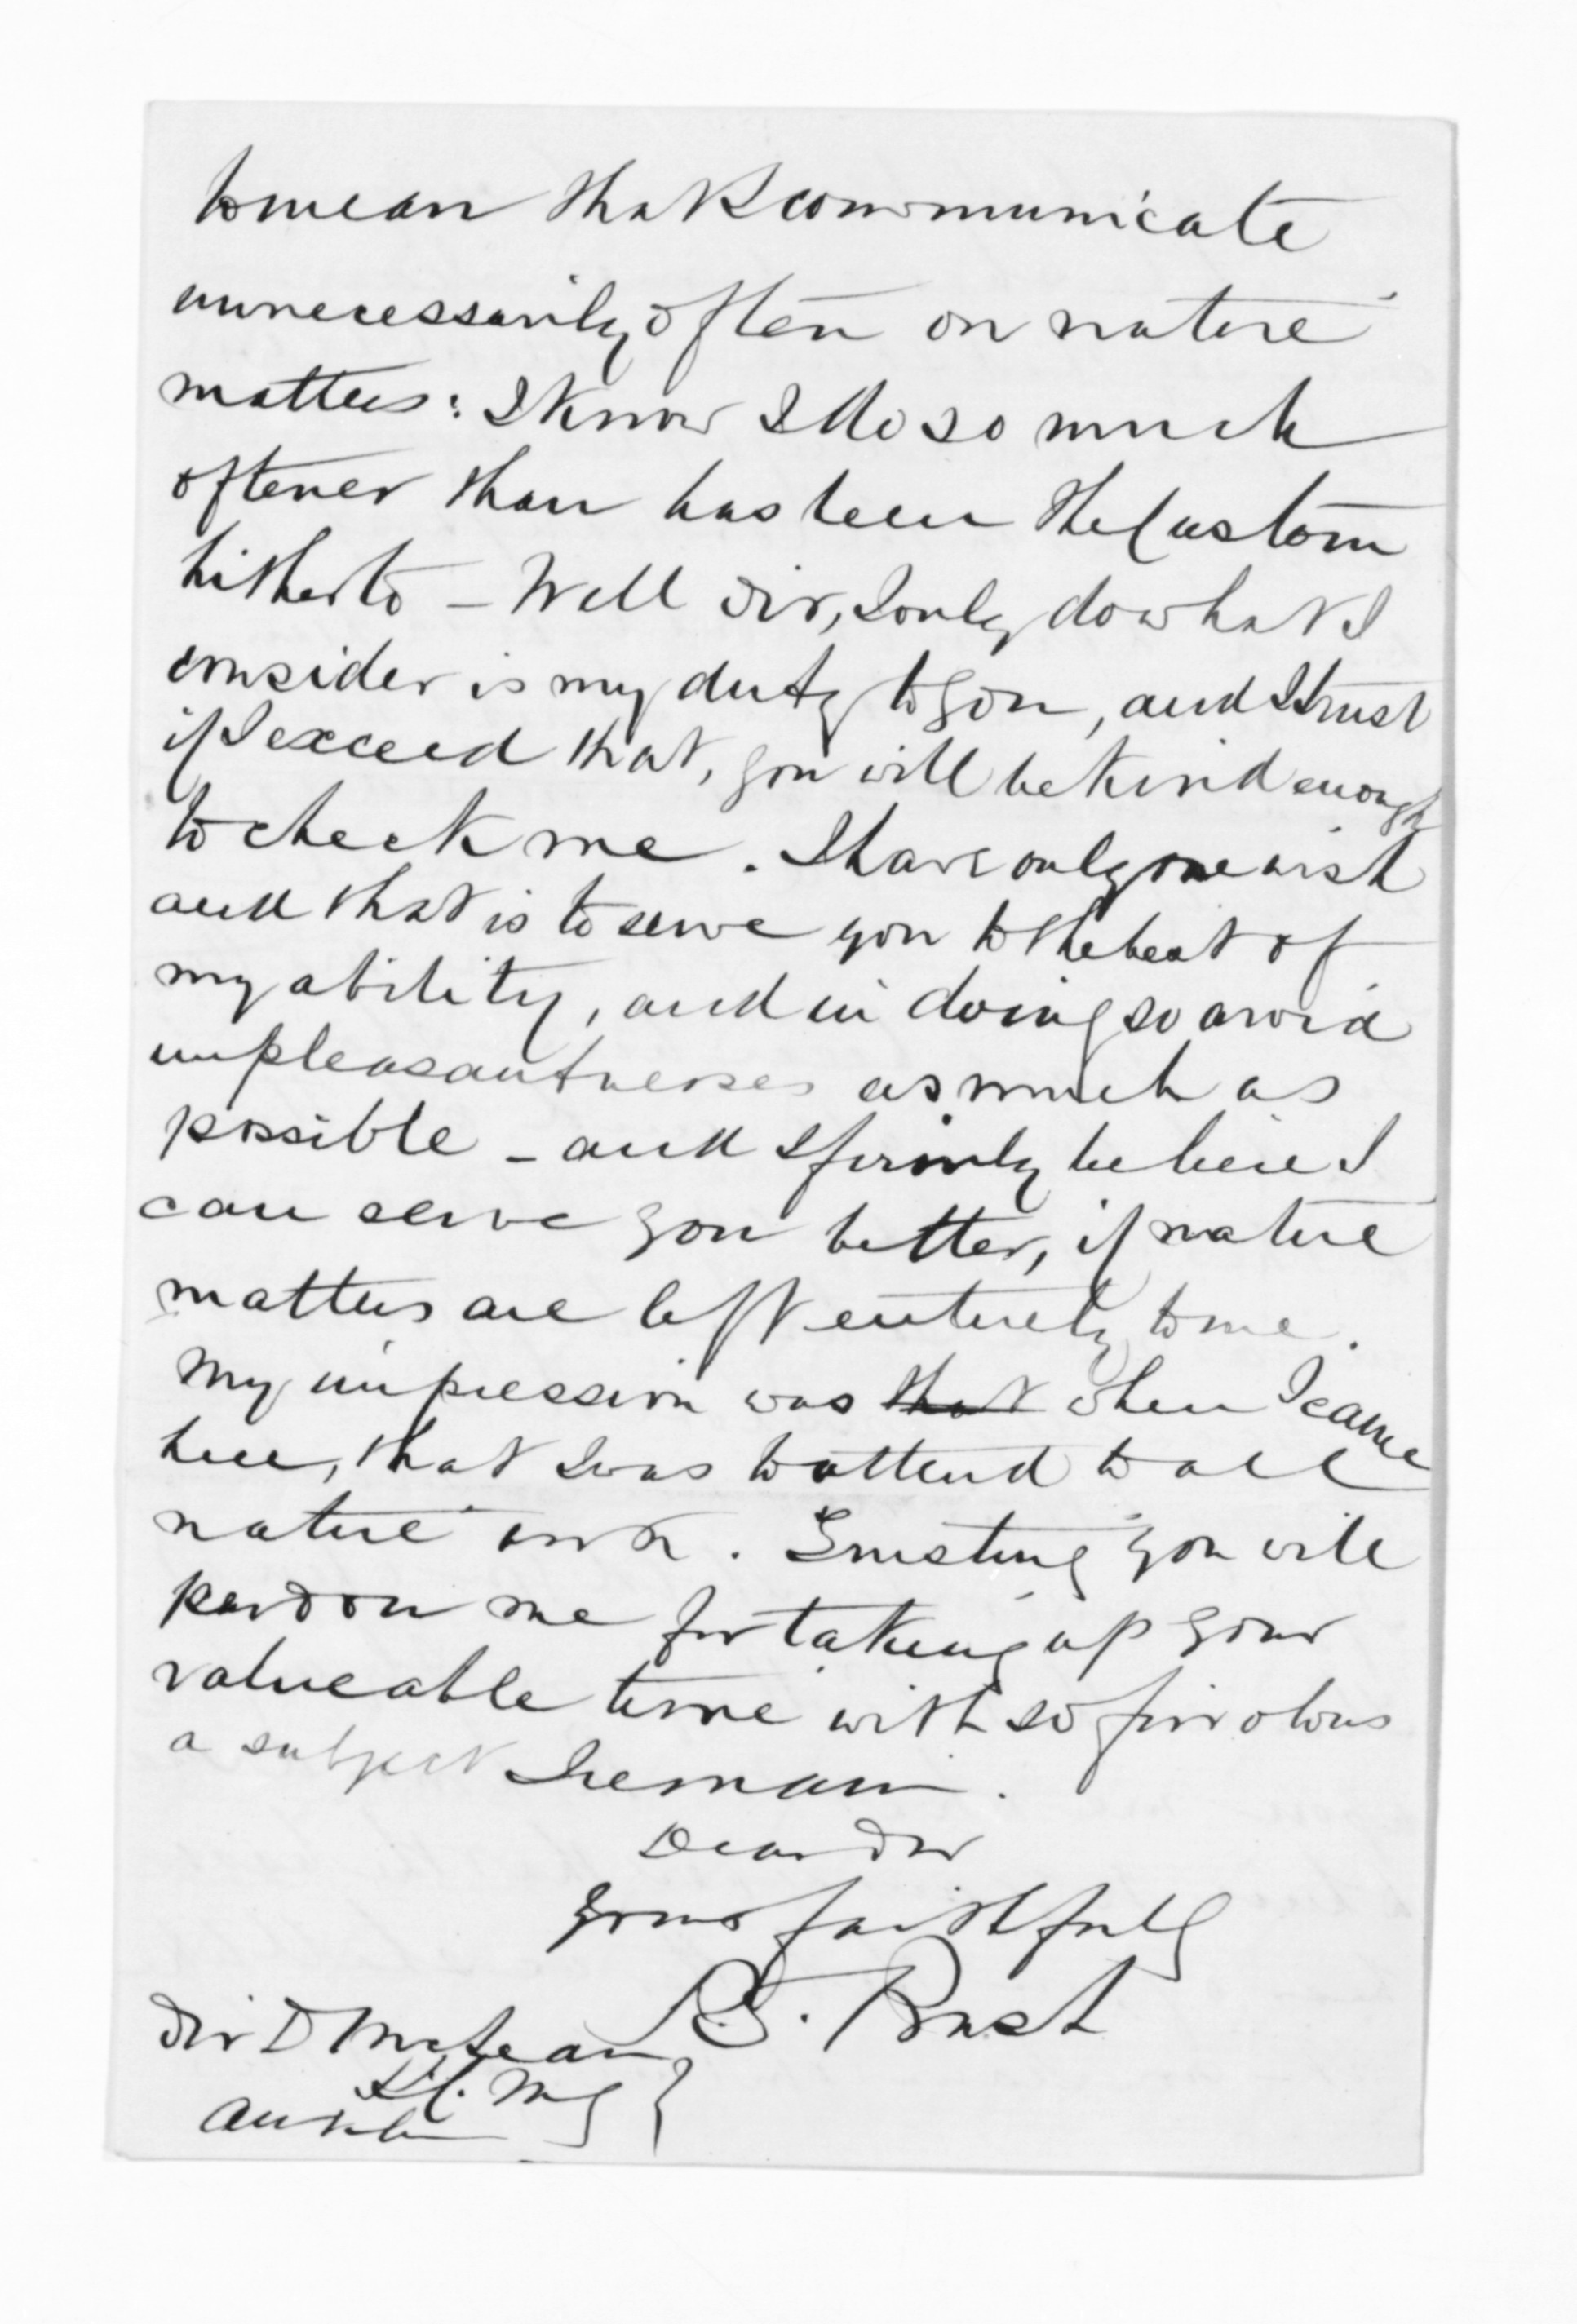 to mean that I communicate
unnecessarily often on native
matters: I know I do so much
oftener than has been the Custom
hitherto – Well Sir, I only do what I
consider is my duty to you, and I trust
if I exceed that, you will be kind enough
to check me. I have only one wish
and that is to serve you to the best of
my ability, and in doing so avoid
unpleasantnesses as much as
possible – and I firmly believe I
can serve you better, if native
matters are left entirely to me.
My impression was that when I came
here, that I was to attend to all
native work. Trusting you will
pardon me for taking up your
valueable time with so frivolous
a subject I remain.
Dear Sir
Yours faithfully
Sir D McLean
K.C. M G
Auckla